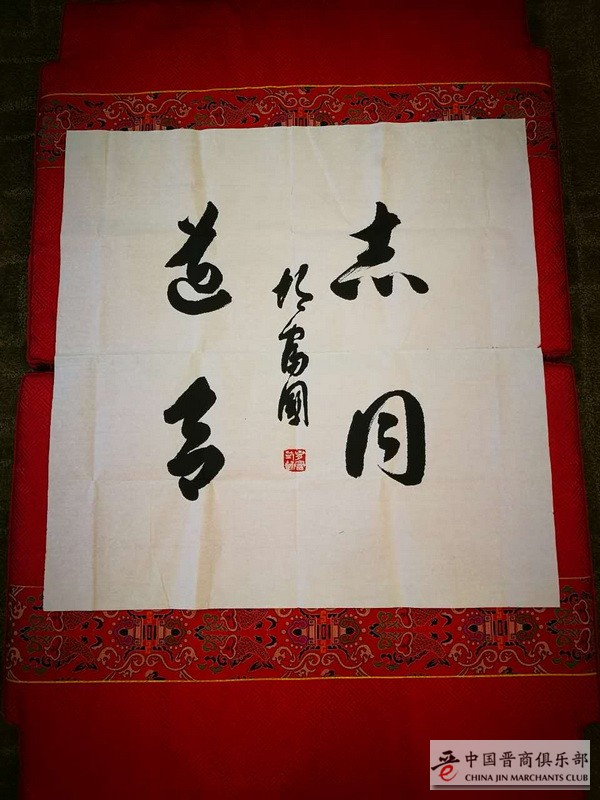 志同
道合
胡富國
中国晋商俱乐部
CHINA JIN MARCHANTS CLUB